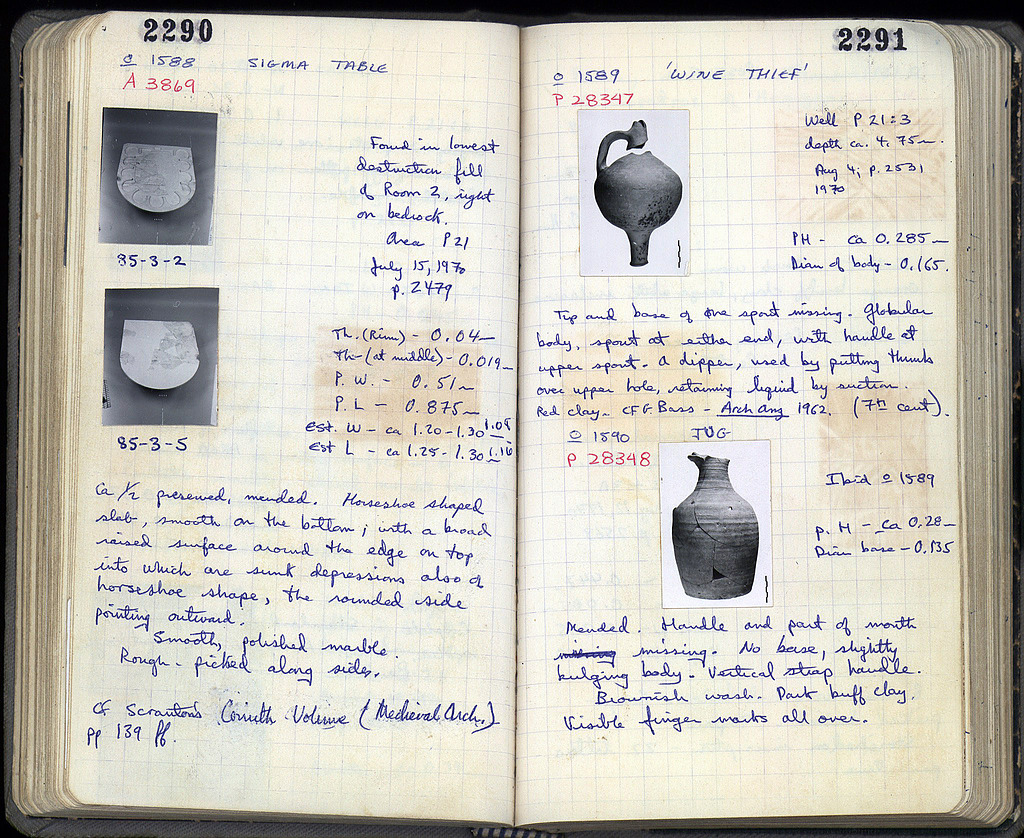 2290
O 1588 SIGMA TABLE
A 3869
Found in lowest
destruction fill
of Room 2, right
on bedrock.
Area P 21
July 15, 1970
p. 2479
85-3-2
Th. (Rim) - 0.04
Th - (at middle) - 0.019
P. W. - 0.51
P. L - 0.875
Est. W - ca 1.20 - 1.30
Est L - ca 1.25 - 1.30 1.16
85-3-5
Ca 1/2 preserved, mended. Horseshoe shaped
slab, smooth on the bottom; with a broad
raised surface around the edge on top
into which are sunk depressions also of
horseshoe shape, the rounded side
pointing outward.
Smooth, polished marble.
Rough-picked along sides.
Cf Scranton's Corinth Volume (Medieval Arch.)
pp 139 ff.
2291
O 1589 'WINE THIEF'
P 28347
Well P 21:3
depth ca. 4.75m.
Aug 4, p. 2531
1970
PH - ca 0.285
Diam of body - 0.165.
Tip and base of one spout missing. Globular
body, spout at either end, with handle at
upper spout. A dipper, used by putting thumb
over upper hole, retaining liquid by suction.
Red clay. CF G Bass - Arch Anz 1962. (7th cent).
O 1590 JUG
P 28348
Ibid O 1589
P. H - ca 0.28
Diam base - 0.135
Mended. Handle and part of mouth
missing. No base, slightly
bulging body. Vertical strap handle.
Brownish wash. Dark buff clay.
Visible finger marks all over.